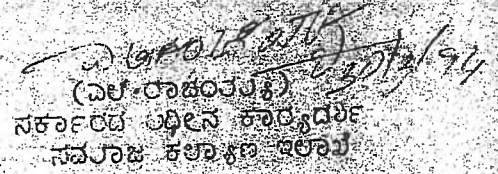 (ಎಲ್.ರಾಚಂತಯ್ಯ)
ಸರ್ಕಾರದ ಅಧೀನ ಕಾರ್ಯದರ್ಶಿ
ಸಮಾಜ ಕಲ್ಯಾಣ ಇಲಾಖೆ